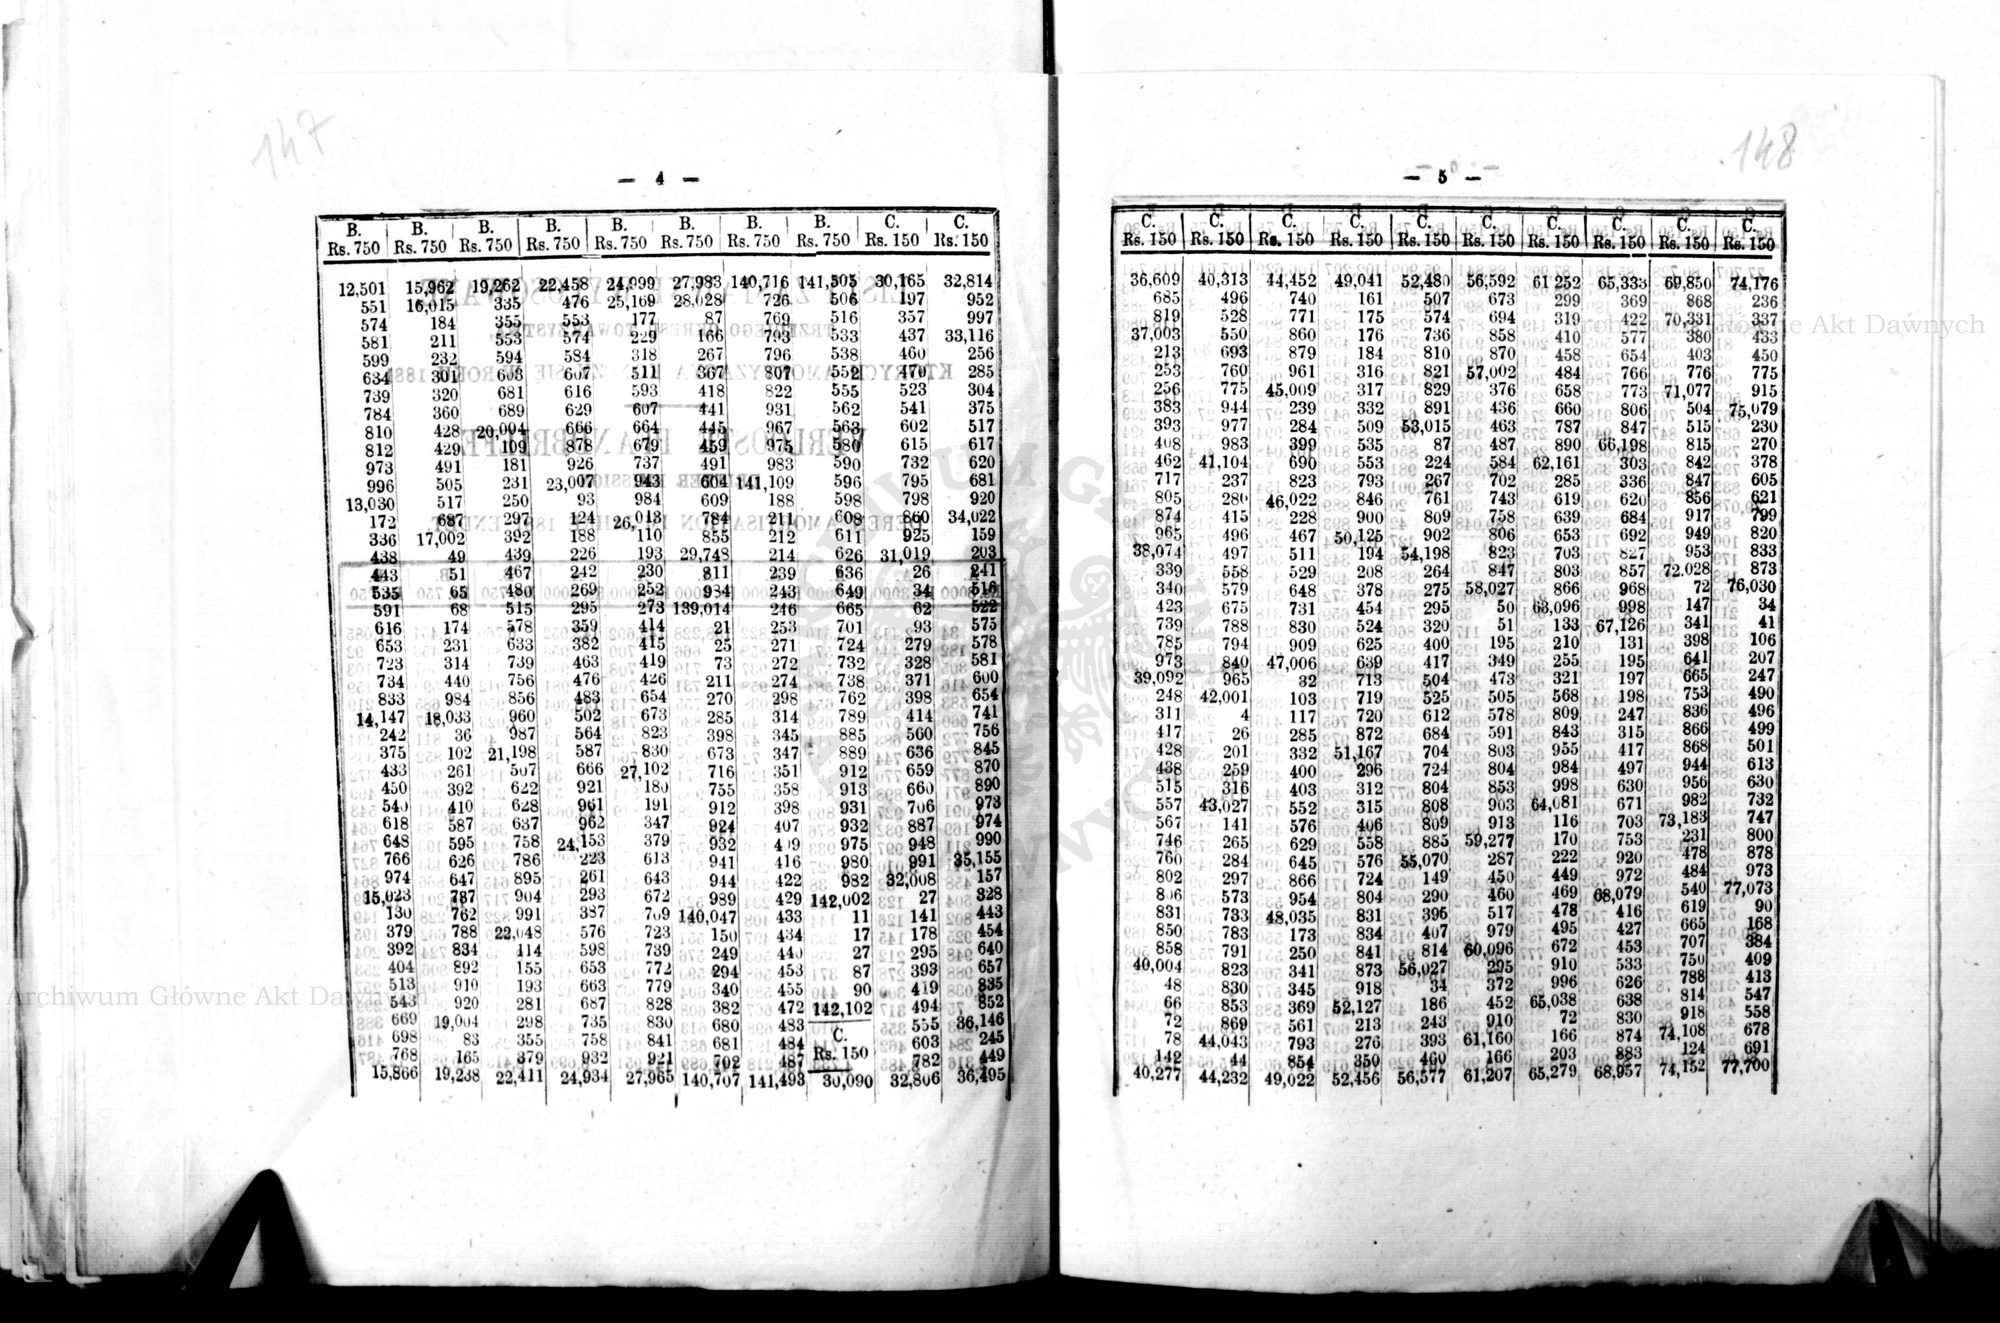 147
— 4 —
B. B. B. B. B. B. B. B. C. C.
Rs. 750 Rs. 750 Rs. 750 Rs. 750 Rs. 750 Rs. 750 Rs. 750 Rs. 750 Rs. 150 Rs. 150
12,501 15,962 19,262 22,458 24,999 27,983 140,716 141,505 30,165 32,814
551 16,015 335 476 25,169 28,028 726 506 197 952
574 184 355 553 177 87 769 516 357 997
581 211 553 574 229 166 793 533 437 33,116
599 232 594 584 318 267 796 538 460 256
634 301 603 607 511 367 807 552 470 285
739 320 681 616 593 418 822 555 523 304
784 360 689 629 607 441 931 562 541 375
810 428 20,004 666 664 445 967 563 602 517
812 429 109 878 679 459 975 580 615 617
973 491 181 926 737 491 983 590 732 620
996 505 231 23,007 943 604 141,109 596 795 681
13,030 517 250 93 984 609 188 598 798 920
172 687 297 124 26,013 784 211 608 860 34,022
336 17,002 392 188 110 855 212 611 925 159
438 49 439 226 193 29,748 214 626 31,019 203
443 51 467 242 230 811 239 636 26 241
535 65 480 269 252 934 243 649 34 516
591 68 515 295 273 139,014 246 665 62 522
616 174 578 359 414 21 253 701 93 575
653 231 633 382 415 25 271 724 279 578
723 314 739 463 419 73 272 732 328 581
734 440 756 476 426 211 274 738 371 600
833 984 856 483 654 270 298 762 398 654
14,147 18,033 960 502 673 285 314 789 414 741
242 36 987 564 823 398 345 885 560 756
375 102 21,198 587 830 673 347 889 636 845
433 261 507 666 27,102 716 351 912 659 870
450 392 622 921 180 755 358 913 660 890
540 410 628 961 191 912 398 931 706 973
618 587 637 962 347 924 407 932 887 974
648 595 758 24,153 379 932 409 975 948 990
766 626 786 223 613 941 416 980 991 35,155
974 647 895 261 643 944 422 982 32,008 157
15,023 787 904 293 672 989 429 142,002 27 328
130 762 991 387 709 140,047 433 11 141 443
379 788 22,048 576 723 150 434 17 178 454
392 834 114 598 739 249 440 27 295 640
404 892 155 653 772 294 453 87 393 657
513 910 193 663 779 340 455 90 419 835
543 920 281 687 828 382 472 142,102 494 852
669 19,004 298 735 830 680 483 C. 555 36,146
698 83 355 758 841 681 484 Rs. 150 603 245
768 165 379 932 921 702 487 782 449
15,866 19,238 22,411 24,934 27,965 140,707 141,493 30,090 32,806 36,495
148
— 5 —
C. C. C. C. C. C. C. C. C. C.
Rs. 150 Rs. 150 Rs. 150 Rs. 150 Rs. 150 Rs. 150 Rs. 150 Rs. 150 Rs. 150 Rs. 150
36,609 40,313 44,452 49,041 52,480 56,592 61 252 65,333 69,850 74,176
685 496 740 161 507 673 299 369 868 236
819 528 771 175 574 694 319 422 70,331 337
37,003 550 860 176 736 858 410 577 380 433
213 693 879 184 810 870 458 654 403 450
253 760 961 316 821 57,002 484 766 776 775
256 775 45,009 317 829 376 658 773 71,077 915
383 944 239 332 891 436 660 806 504 75,079
393 977 284 509 53,015 463 787 847 515 230
408 983 399 535 87 487 890 66,198 815 270
462 41,104 690 553 224 584 62,161 303 842 378
717 237 823 793 267 702 285 336 847 605
805 280 46,022 846 761 743 619 620 856 621
874 415 228 900 809 758 639 684 917 799
965 496 467 50,125 902 806 653 692 949 820
38,074 497 511 194 54,198 823 703 827 953 833
339 558 529 208 264 847 803 857 72.028 873
340 579 648 378 275 58,027 866 968 72 76,030
423 675 731 454 295 50 63,096 998 147 34
739 788 830 524 320 51 133 67,126 341 41
785 794 909 625 400 195 210 131 398 106
973 840 47,006 639 417 349 255 195 641 207
39,092 965 32 713 504 473 321 197 665 247
248 42,001 103 719 525 505 568 198 753 490
311 4 117 720 612 578 809 247 836 496
417 26 285 872 684 591 843 315 866 499
428 201 332 51,167 704 803 955 417 868 501
438 259 400 296 724 804 984 497 944 613
515 316 403 312 804 853 998 630 956 630
557 43,027 552 315 808 903 64,081 671 982 732
567 141 576 406 809 913 116 703 73,183 747
746 265 629 558 885 59,277 170 753 231 800
760 284 645 576 55,070 287 222 920 478 878
802 297 866 724 149 450 449 972 484 973
806 573 954 804 290 460 469 68,079 540 77,073
831 733 48,035 831 395 517 478 416 619 90
850 783 173 834 407 979 495 427 665 168
858 791 250 841 814 60,096 672 453 707 384
40,004 823 341 873 56,027 295 910 533 750 409
48 830 345 918 34 372 996 626 788 413
66 853 369 52,127 186 452 65,038 638 814 547
72 869 561 213 243 910 72 830 918 558
78 44,043 793 276 393 61,160 166 874 74,108 678
142 44 854 350 460 166 203 883 124 691
40,277 44,232 49,022 52,456 56,577 61,207 65,279 68,957 74,152 77,700
Archiwum Główne Akt Dawnych
Archiwum Główne Akt Dawnych